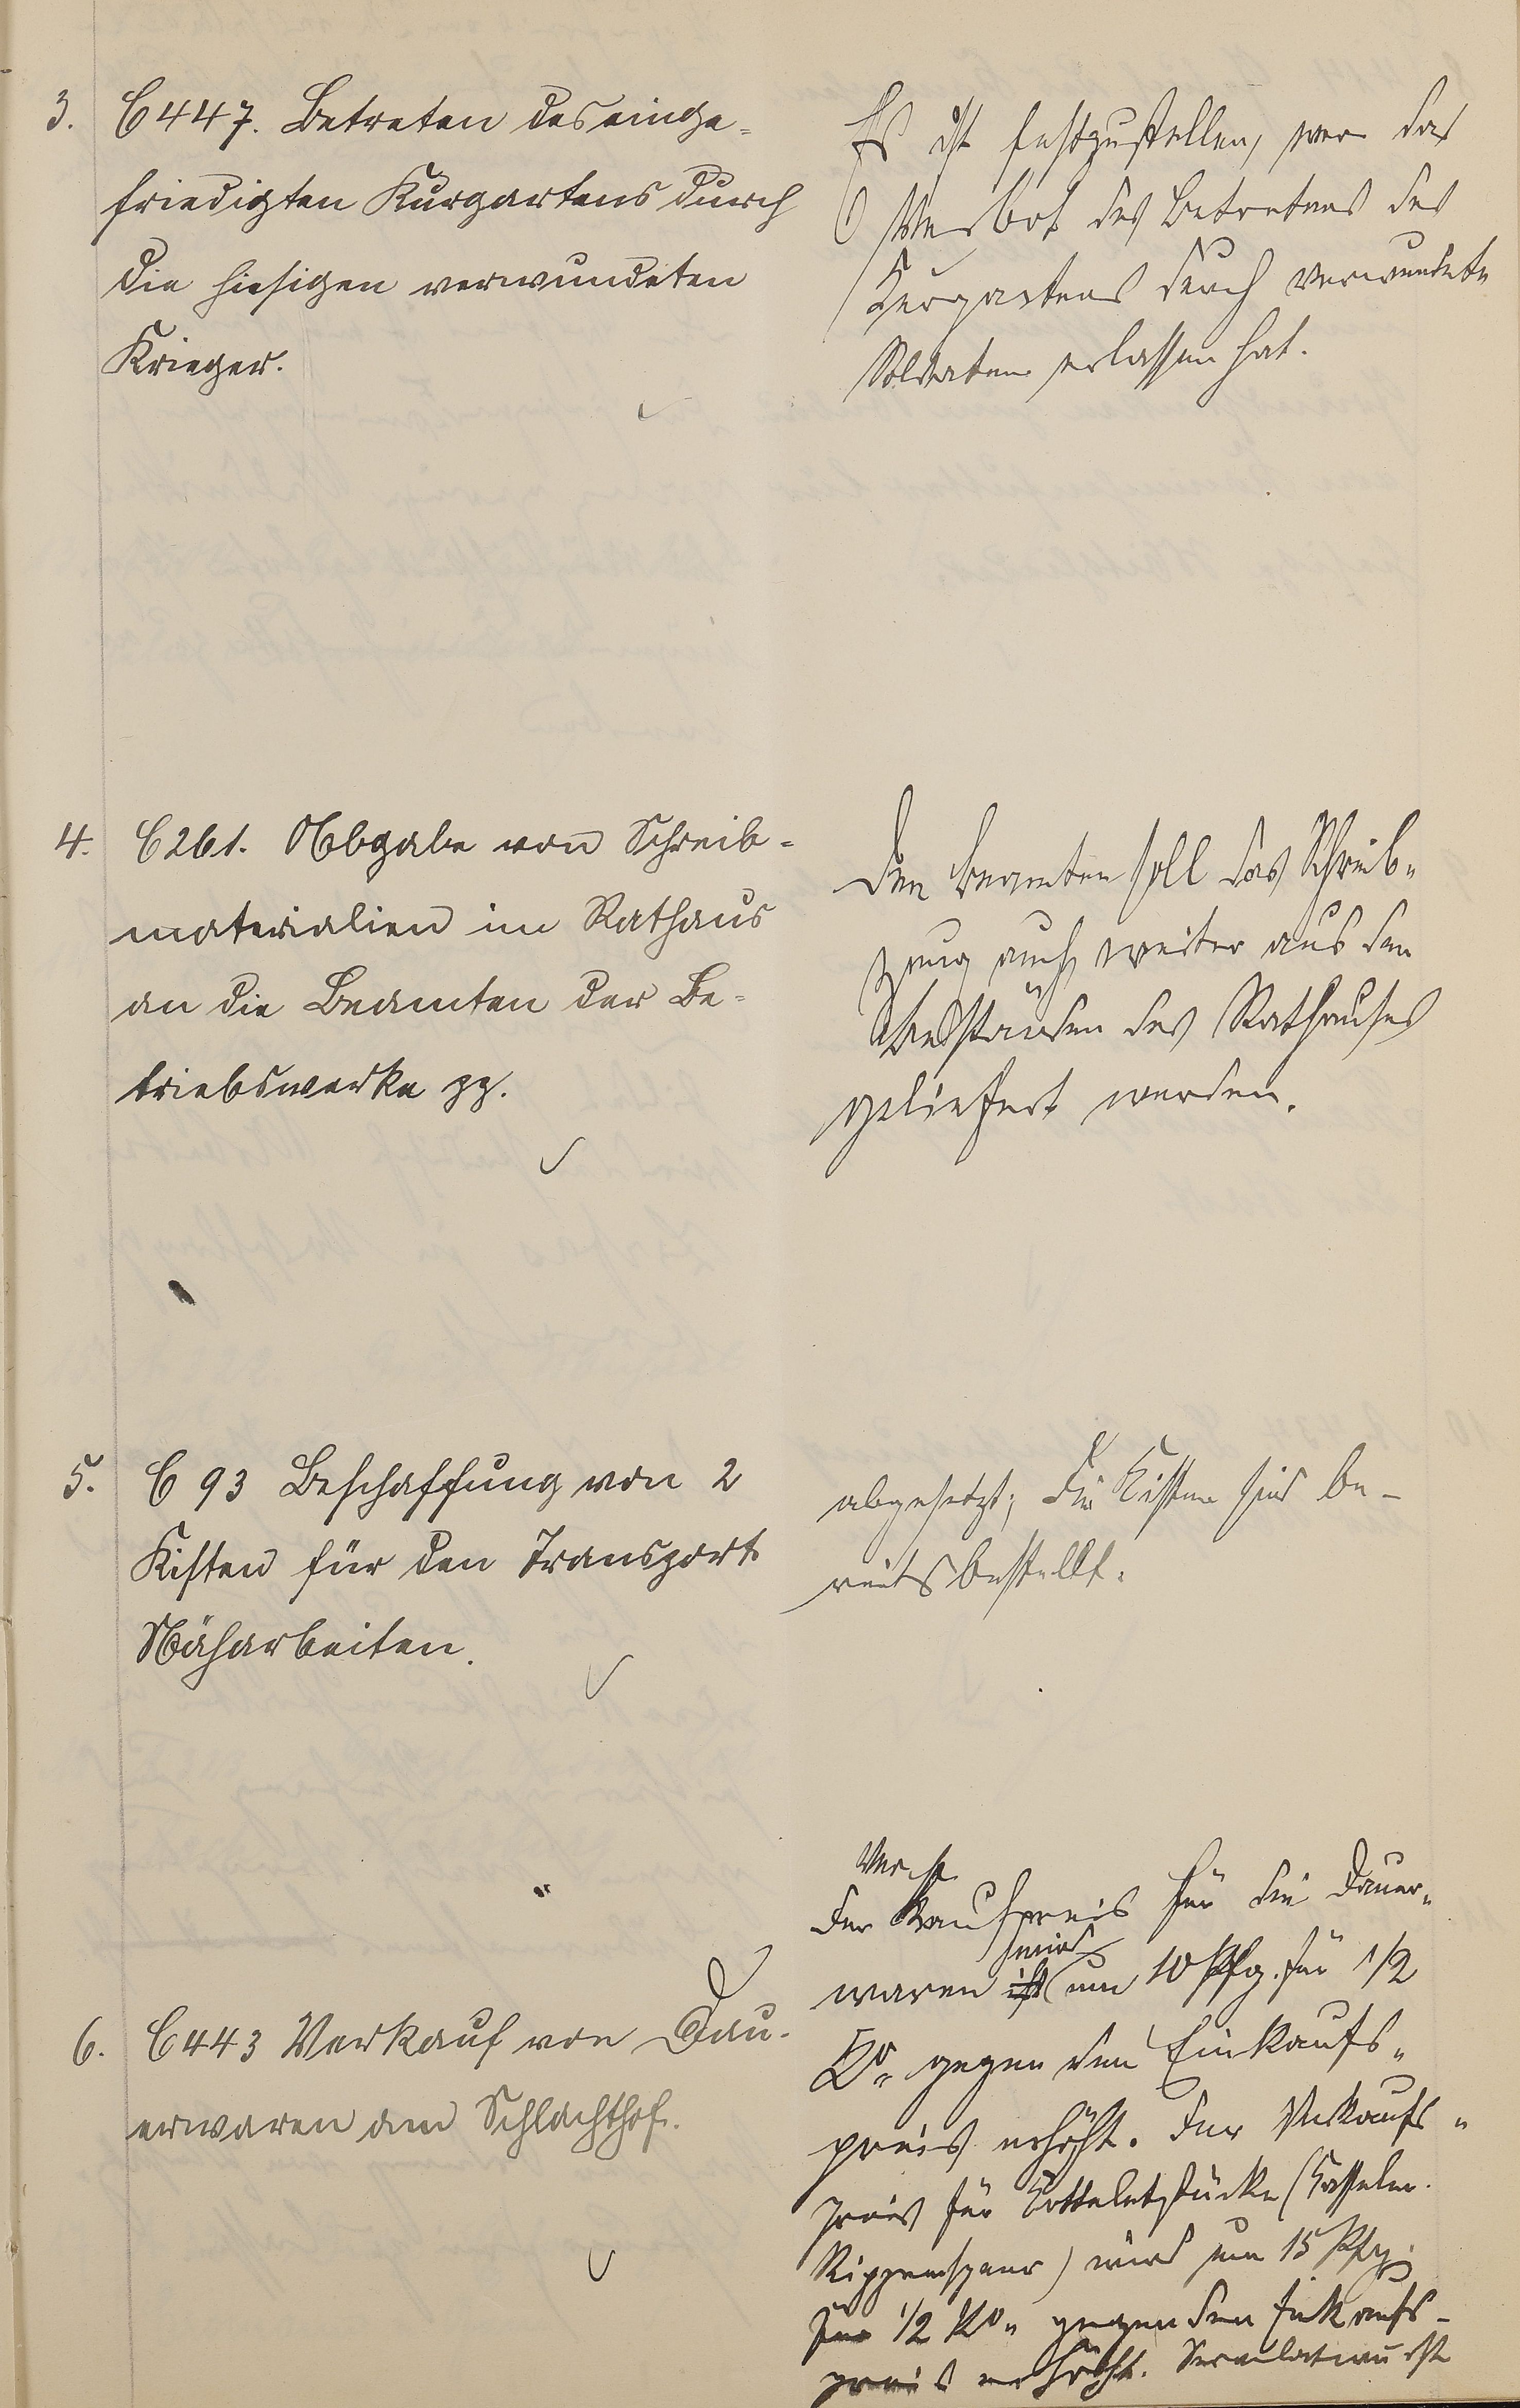 3. C 447. Betreten des einge-
friedigten Kurgartens durch
die hiesigen verwundeten
Krieger.
Es ist festzustellen, wer das
Verbot des Betretens des
Kurgartens durch verwundete
Soldaten erlassen hat.
4. C 261. Abgabe von Schreib-
materialien im Rathaus
an die Beamten der Be-
triebswerke pp.
Den Beamten soll das Schreib-
zeug auch weiter aus den
Beständen des Rathauses
geliefert werden.
5. C 93 Beschaffung von 2
Kisten für den Transport
Näharbeiten.
abgesetzt; die Kisten sind be-
reits bestellt.
6. C 443 Verkauf von Dau-
erwaren am Schlachthof.
Ver
Der kaufpreis für die Dauer-
wird
waren ist um 10 Pfg. für 1/2
Ko. gegen den Einkaufs-
preis erhöht. Der Verkaufs-
preis für Kotteletstücke (Kasseler
Rippenspeer) wird um 15 Pfg.
für 1/2 Ko. gegen den Einkaufs-
preis erhöht. Servelatwurst